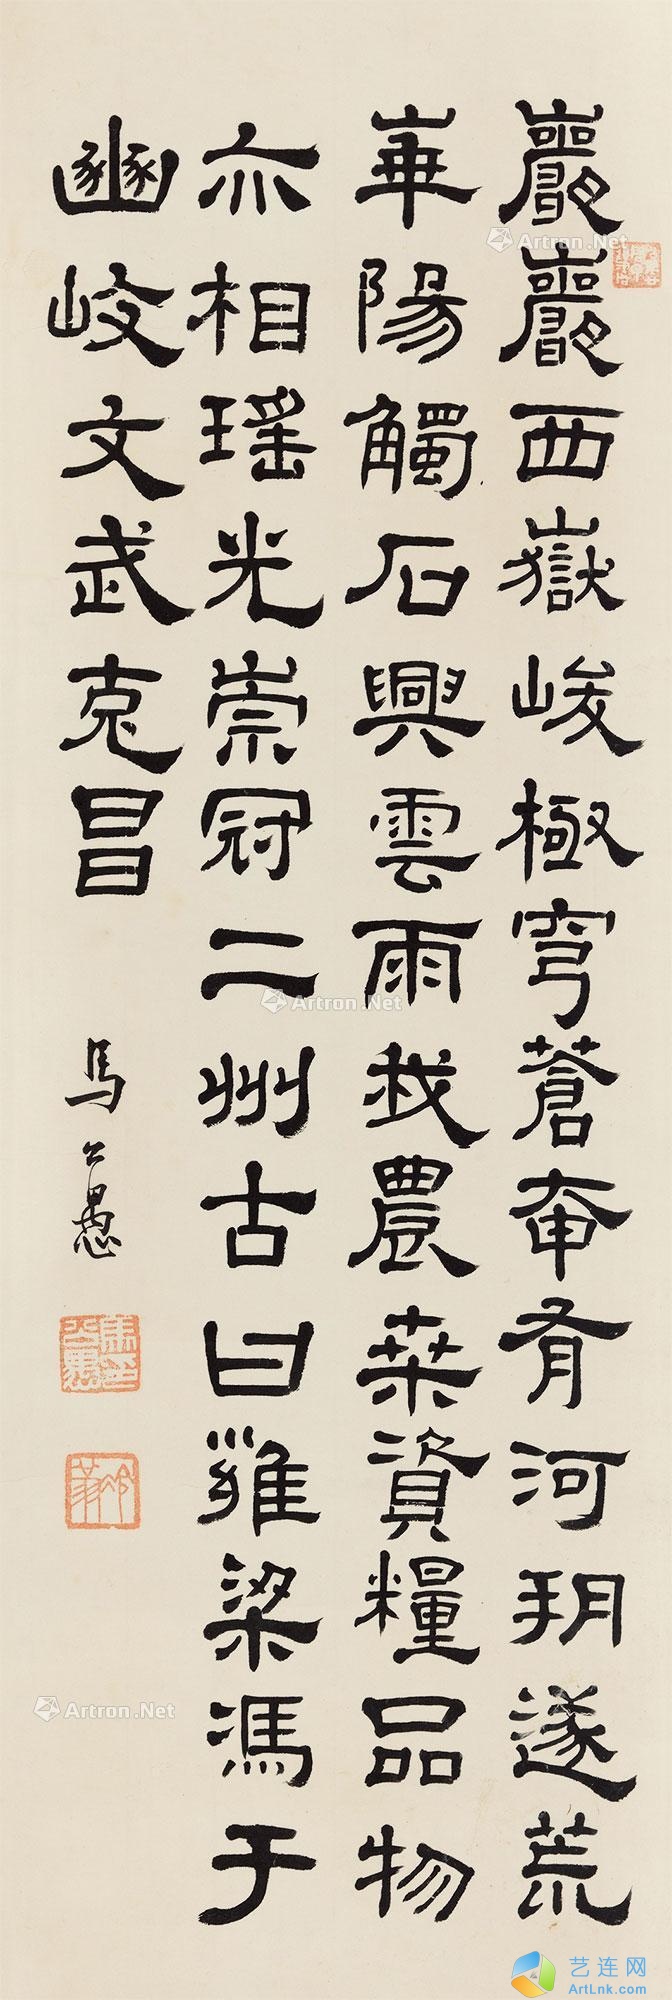 巖巖西嶽峻極穹蒼奄有河朔遂荒
華陽觸石興雲雨我農桒資糧品物
亦相瑤光崇冠二州古曰雍梁馮于
豳岐文武克昌
馬公愚
馬公愚印
Artron.Net
Artron.Net
Artron.Net
Artron.Net
艺连网
ArtLnk.com